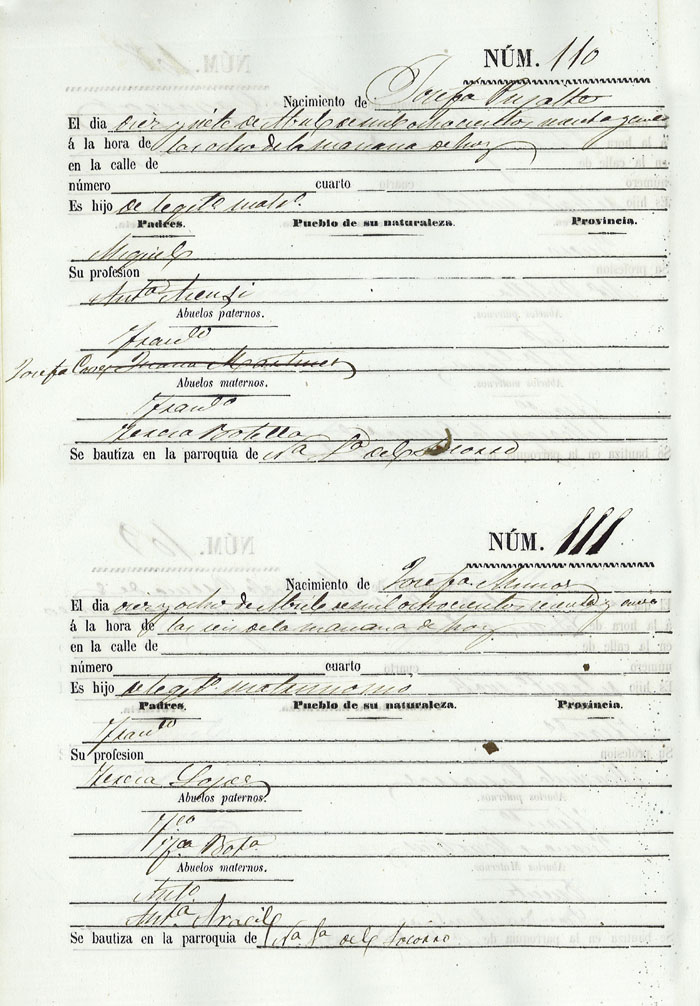 NÚM. 110
Nacimiento de Josefa Pujalte
El dia diez y siete de Abril de mil ochocientos
á la hora de las ocho de la mañana de hoy
en la calle de
número cuarto
Es hijo de legit.o matr.o
Padres. Pueblo de su naturaleza. Provincia.
Miguel
Su profesion
Ant.a Asensi
Abuelos paternos.
Fran.co
Josefa
Abuelos maternos.
Fran.co
Teresa Botella
Se bautiza en la parroquia de Ntra Sra del Socorro
NÚM. 111
Nacimiento de Josefa
El dia diez y ocho de Abril de mil ochocientos
á la hora de las seis de la mañana de hoy
en la calle de
número cuarto
Es hijo de legit.o matrimonio
Padres. Pueblo de su naturaleza. Provincia.
Fran.co
Su profesion
Teresa Lopez
Abuelos paternos.
Abuelos maternos.
Ant.o
Ant.a Aracil
Se bautiza en la parroquia de Ntra Sra del Socorro